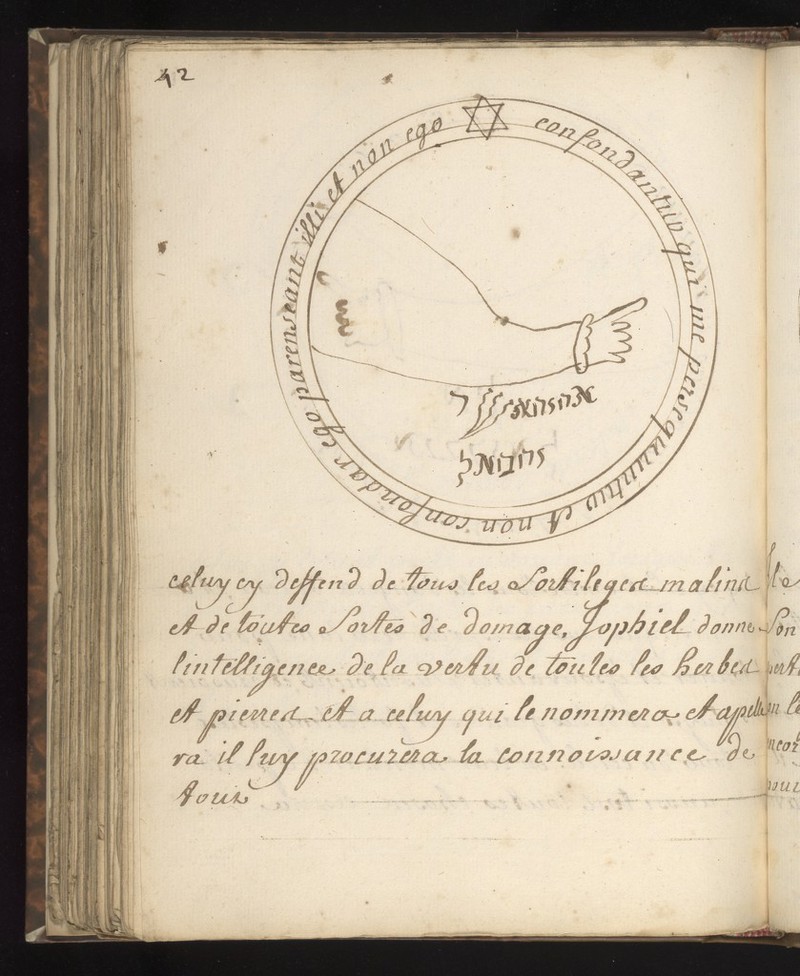 42
confondantur qui me persequuntur et non confondar ego parenseant illi et non ego
celuy cy deffend de tous les Sortileges malins
et de toutes Sortes de domage, Jophiel donne
l'intelligence de la vertu de toutes les herbes
et pierres et a celuy qui le nommera et apelle
ra il luy procurera la connoissance de
tous